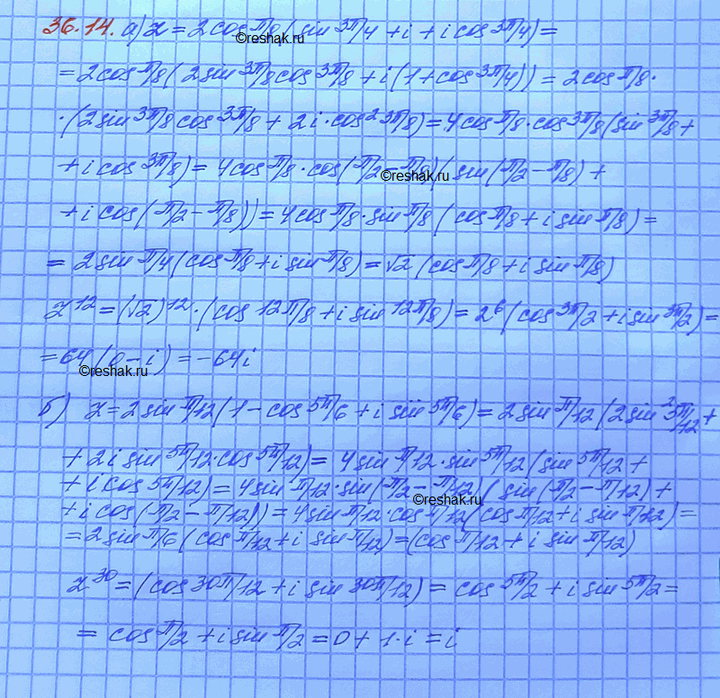 36.14. а) z = 2cos π/8 (sin 3π/4 + i + i cos 3π/4) =
= 2cos π/8 (2sin 3π/8 cos 3π/8 + i(1 + cos 3π/4)) = 2cos π/8 ·
· (2sin 3π/8 cos 3π/8 + 2i · cos² 3π/8) = 4cos π/8 · cos 3π/8 (sin 3π/8 +
+ i cos 3π/8) = 4cos π/8 · cos(π/2 - π/8)(sin(π/2 - π/8) +
+ i cos(π/2 - π/8)) = 4cos π/8 · sin π/8 (cos π/8 + i sin π/8) =
= 2sin π/4 (cos π/8 + i sin π/8) = √2 (cos π/8 + i sin π/8)
z¹² = (√2)¹² · (cos 12π/8 + i sin 12π/8) = 2⁶ (cos 3π/2 + i sin 3π/2) =
= 64 (0 - i) = -64i
б) z = 2sin π/12 (1 - cos 5π/6 + i sin 5π/6) = 2sin π/12 (2sin² 5π/12 +
+ 2i sin 5π/12 · cos 5π/12) = 4sin π/12 · sin 5π/12 (sin 5π/12 +
+ i cos 5π/12) = 4sin π/12 · sin(π/2 - π/12)(sin(π/2 - π/12) +
+ i cos(π/2 - π/12)) = 4sin π/12 · cos π/12 (cos π/12 + i sin π/12) =
= 2sin π/6 (cos π/12 + i sin π/12) = (cos π/12 + i sin π/12)
z³⁰ = (cos 30π/12 + i sin 30π/12) = cos 5π/2 + i sin 5π/2 =
= cos π/2 + i sin π/2 = 0 + 1·i = i
©reshak.ru
©reshak.ru
©reshak.ru
©reshak.ru